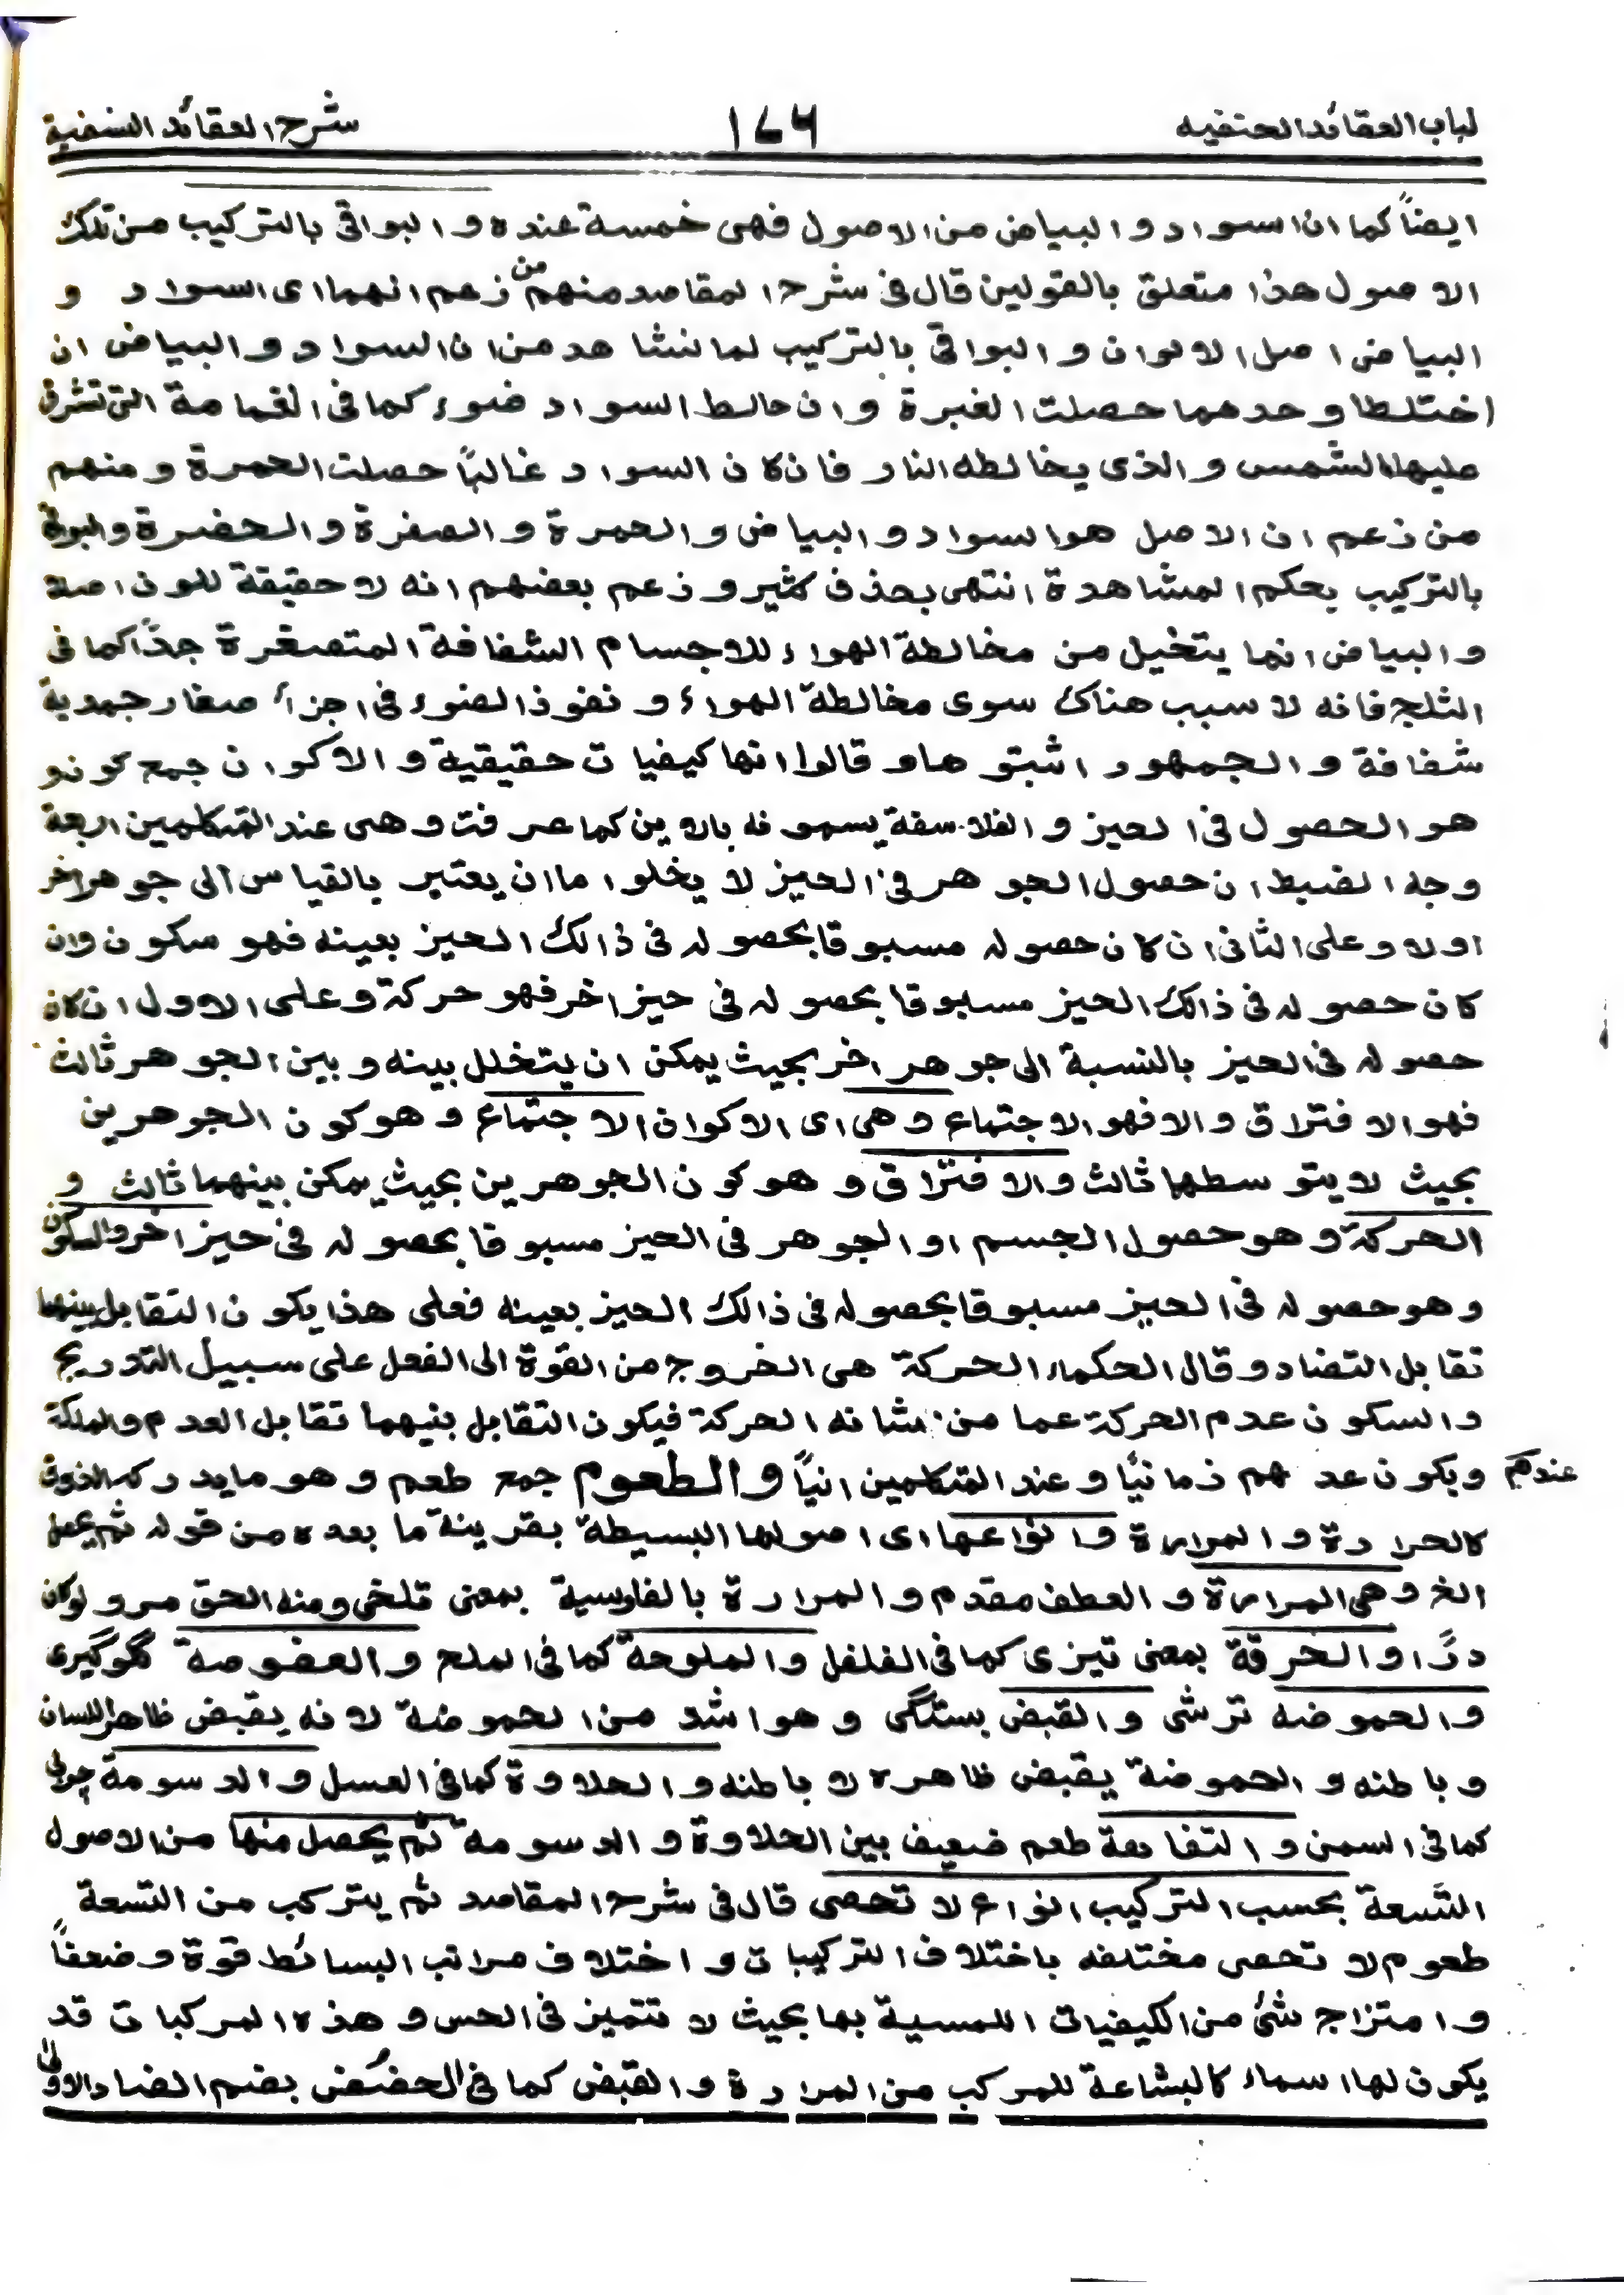 لباب العقائد الحنفيه ١٧٦ شرح العقائد النسفية
ايضاً كما ان السواد و البياض من الاصول فهى خمسة عنده و البواقى بالتركيب من تلك
الاصول هذا متعلق بالقولين قال فى شرح المقاصد منهم من زعم انهما اى السواد و
البياض اصل الالوان و البواقى بالتركيب لما نشاهد من ان السواد و البياض ان
اختلطا وحدهما حصلت الغبرة وان خالط السواد ضوء كما فى الغمامة التى تشرق
عليها الشمس و الذى يخالطه النار فان كان السواد غالباً حصلت الحمرة و منهم
من زعم ان الاصل هو السواد و البياض و الحمرة و الصفرة و الخضرة و البواقى
بالتركيب بحكم المشاهدة انتهى بحذف كثير و زعم بعضهم انه لا حقيقة للون اصلا
و البياض انما يتخيل من مخالطة الهواء للاجسام الشفافة المتصغرة جداً كما فى
الثلج فانه لا سبب هناك سوى مخالطة الهواء و نفوذ الضوء فى اجزاء صغار جمدية
شفافة و الجمهور اثبتوها و قالوا انها كيفيات حقيقية و الاكوان جمع كون و
هو الحصول فى الحيز و الفلاسفة يسمونه بالاين كما عرفت و هى عند المتكلمين اربعة
وجه الضبط ان حصول الجوهر فى الحيز لا يخلوا ما ان يعتبر بالقياس الى جوهر اخر
اولا و على الثانى ان كان حصوله مسبوقا بحصوله فى ذالك الحيز بعينه فهو سكون وان
كان حصوله فى ذالك الحيز مسبوقا بحصوله فى حيز اخر فهو حركة و على الاول ان كان
حصوله فى الحيز بالنسبة الى جوهر اخر بحيث يمكن ان يتخلل بينه و بين الجوهر ثالث
فهو الافتراق و الا فهو الاجتماع و هى اى الاكوان الاجتماع و هو كون الجوهرين
بحيث لا يتوسطها ثالث و الافتراق و هو كون الجوهرين بحيث يمكن بينهما ثالث و
الحركة و هو حصول الجسم او الجوهر فى الحيز مسبوقا بحصوله فى حيز اخر والسكون
و هو حصوله فى الحيز مسبوقا بحصوله فى ذالك الحيز بعينه فعلى هذا يكون التقابل بينهما
تقابل التضاد و قال الحكماء الحركة هى الخروج من القوة الى الفعل على سبيل التدريج
و السكون عدم الحركة عما من شانه الحركة فيكون التقابل بنيهما تقابل العدم والملكة
عندهم ويكون عد هم زمانيًا و عند المتكلمين انياً و الطعوم جمع طعم و هو ما يدركه الذوق
كالحرارة و المرارة و انواعها اى اصولها البسيطة بقرينة ما بعده من قوله ثم يحصل
الخ و هى المرارة و العطف مقدم و المرارة بالفارسية بمعنى تلخى ومنه الحق مر و لوكان
درًا و الحرقة بمعنى تيزى كما فى الفلفل و الملوحة كما فى الملح و العفوصة گلوگيرى
و الحموضه ترشى و القبض بستگى و هو اشد من الحموضة لانه يقبض ظاهر اللسان
و باطنه و الحموضة يقبض ظاهره لا باطنه و الحلاوة كما فى العسل و الدسومة چربى
كما فى السمن و التفاهة طعم ضعيف بين الحلاوة و الدسومة ثم يحصل منها من الاصول
التسعة بحسب التركيب انواع لا تحصى قال فى شرح المقاصد ثم يتركب من التسعة
طعوم لا تحصى مختلفه باختلاف التركيبات و اختلاف مراتب البسائط قوة و ضعفاً
و امتزاج شئ من الكيفيات اللمسية بها بحيث لا تتميز فى الحس و هذه المركبات قد
يكون لها اسماء كالبشاعة للمركب من المرارة و القبض كما فى الحضض بضم الضاد الاولى